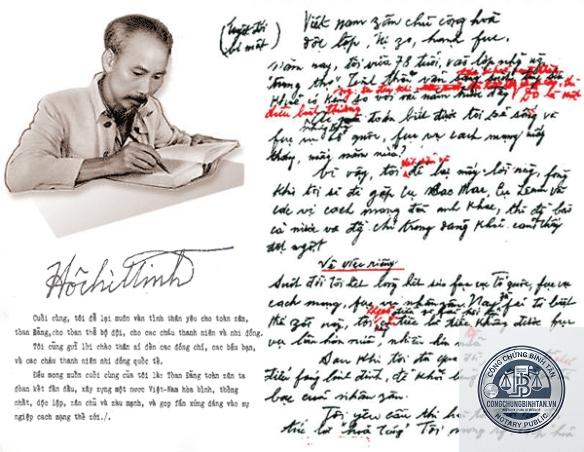 (Tuyệt đối
bí mật)
Hồ Chí Minh
Cuối cùng, tôi để lại muôn vàn tình thân yêu cho toàn zân,
toàn Đảng, cho toàn thể bộ đội, cho các cháu thanh niên và nhi đồng.
Tôi cũng gửi lời chào thân ái đến các đồng chí, các bầu bạn,
và các cháu thanh niên nhi đồng quốc tế.
Điều mong muốn cuối cùng của tôi là: Toàn Đảng toàn zân ta
đoàn kết fấn đấu, xây zựng một nước Việt-Nam hòa bình, thống
nhất, độc lập, zân chủ và zàu mạnh, và góp fần xứng đáng vào sự
ngiệp cách mạng thế zới./.
Việt nam zân chủ cộng hoà
độc lập, tự zo, hạnh fúc.
Năm nay, tôi vừa 78 tuổi, vào lớp những người
"trung thọ". Tinh thần vẫn sáng suốt
khoẻ có kém so với vài năm trước đây
điều bình thường
toàn biết được tôi
fục vụ Tổ quốc, fục vụ cách mạng mấy
tháng, mấy năm nữa?
Vì vậy, tôi để lại mấy lời này, fòng
khi tôi sẽ đi gặp cụ Các Mác, Cụ Lênin và
các vị cách mạng đàn anh khác, thì đồng bào
cả nước và đồng chí trong đảng khỏi cảm thấy
đột ngột
Về việc riêng
Suốt đời tôi hết lòng hết sức fục vụ Tổ quốc, fục vụ
cách mạng, fục vụ nhân zân. Nay fải từ biệt
thế zới này, tôi không có điều gì fải hối hận, chỉ tiếc là không được fục
vụ lâu hơn nữa, nhiều hơn nữa
Sau khi tôi đã qua
điếu fúng linh đình, để khỏi
bạc của nhân zân.
Tôi yêu cầu thi hài
tức là "hoả táng". Tôi mong
CÔNG CHỨNG BÌNH TÂN
CONGCHUNGBINHTAN.VN
NOTARY PUBLIC